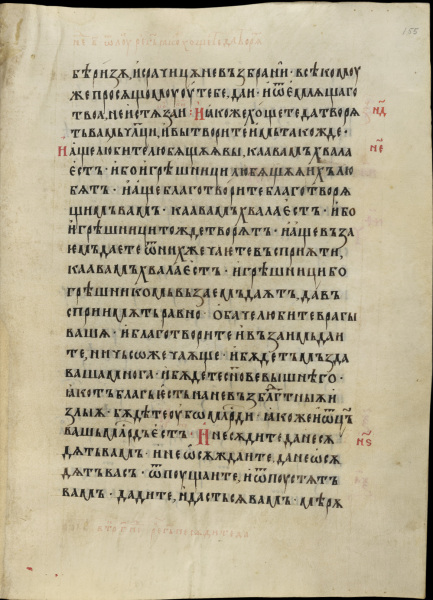 бѣ ризѫ, и срачицѫ не възбрани · всѣкомоу
же просѧщомоу оу тебе, даи · и ѿ емлѧщаго
твоа, не истѧзаи · И ꙗкоже хощете да творѧ
тъ вамь чл҃ци, и вы творите имъ такожде ·
И аще любите любѧщѫѧ вы, каа вамъ хвала
естъ · ибо и грѣшници любѧщѫѧ ихъ лю
бѧтъ · и аще благотворите благотворѧ
щимъ вамъ · каа вамъ хвала естъ · ибо
и грѣшници тожде творѧт · и аще въза
емъ даете ѿ нихже чаете въсприѧти,
каа вамъ хвала естъ · и грѣшници бо
грѣшникомь възаемъ даѧтъ, да въ
сприимѫтъ равно · обаче любите врагы
вашѧ · и благотворите и възаимь даи
те, ничьсоже чаѫще · и бѫдетъ мъзда
ваша многа · и бѫдете сн҃ове вышнѣго ·
ꙗко тъ благь естъ на невъзблгⷣтныѫ и
злыѫ · бѫдете оубо млⷭрди · ꙗкоже и ѡц҃ъ
вашь млⷭрдъ естъ · И не сѫдите да не сѫ
дѧтъ вамъ · и не ѡсѫждаите, да не ѡсѫ
дѧтъ васъ · ѿпоущаите, и ѿпоустѧт
вамъ · дадите, и дастъсѧ вамъ · мѣрѫ
н҃д
н҃е
н҃ѕ
155